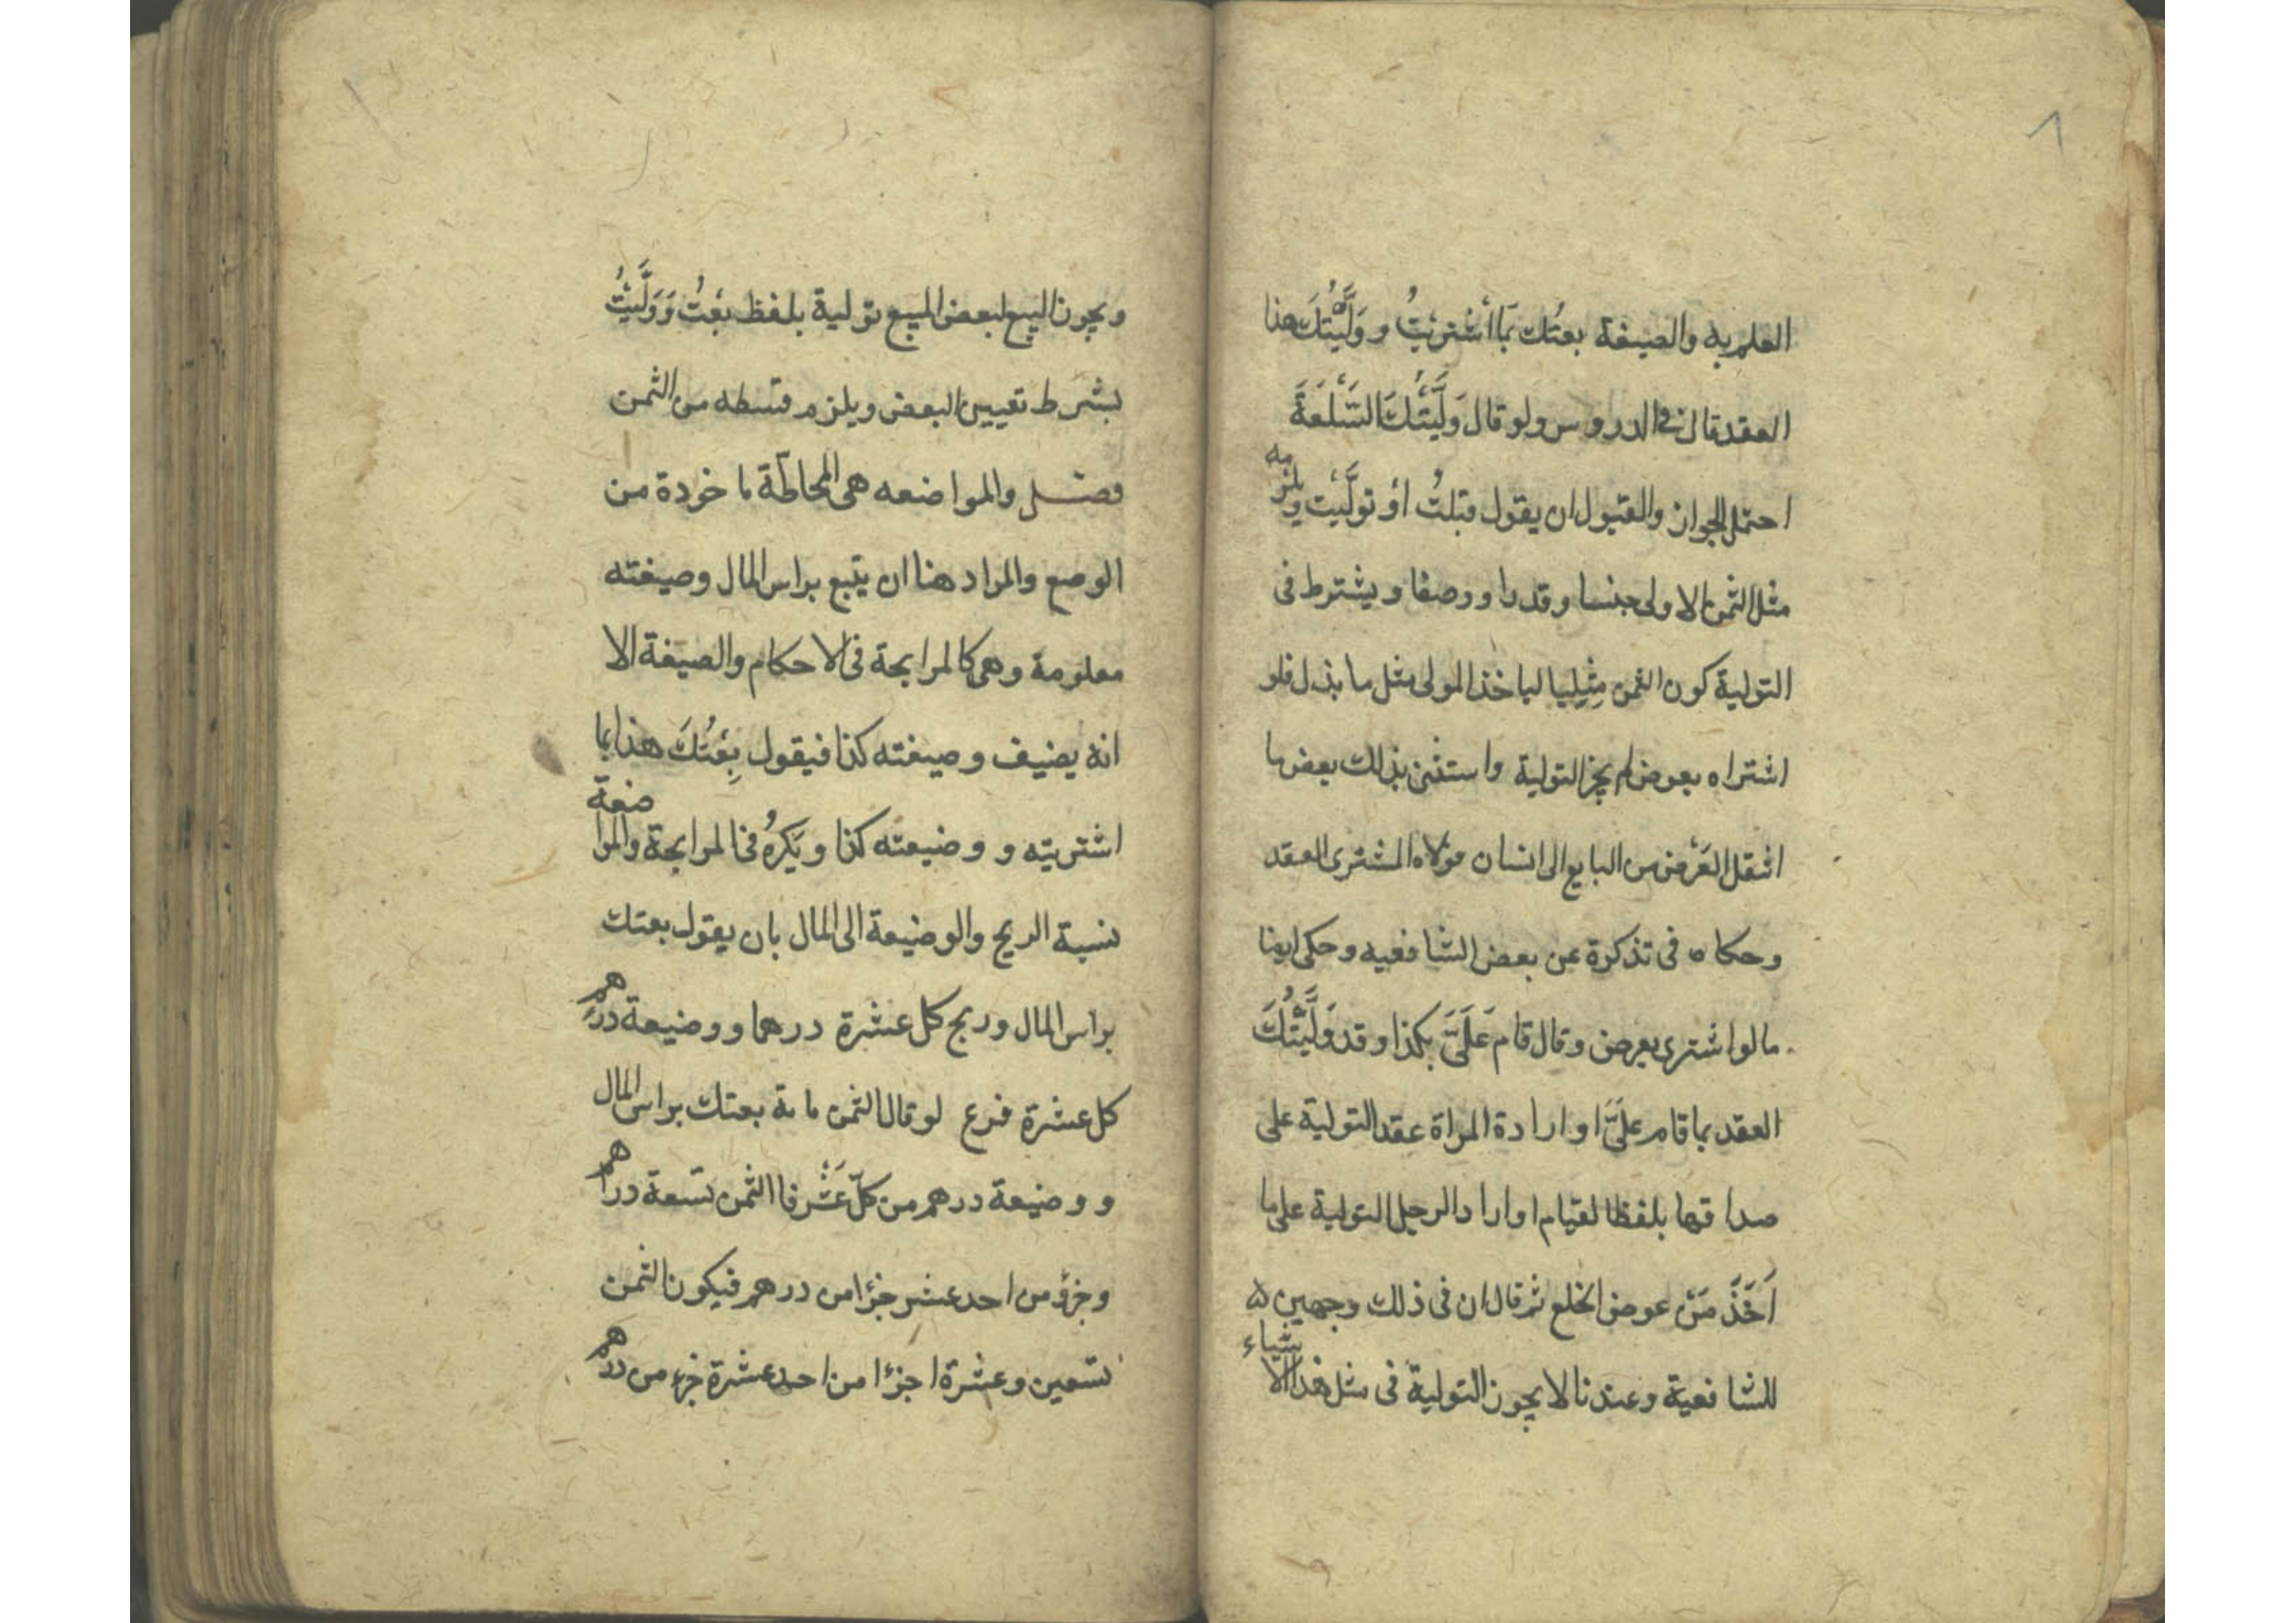 ٨
العلم به والصيغة بعتك بما اشتريتُ و ولَّيْتُكَ هذا
العقد قال في الدروس ولو قال وَلَّيْتُكَ السَّلْعَةَ
احتمل الجواز والقبول ان يقول قبلتُ أو تولَّيْت ويلزمه
مثل الثمن الاولى جنسا وقدرا ووصفا ويشترط فى
التولية كون الثمن مِثْلِيا لياخذ المولى مثل ما بذل فلو
اشتراه بعوض لم يجز التولية واستثنى بذلك بعض ما
انتقل العَرْض من البايع الى انسان مولاه المشترى العقد
وحكاه فى تذكرة عن بعض الشافعيه وحكى ايضا
ما لو اشترى بعرض وقال قام عَلَىَّ بكذا وقد وَلَّيْتُكَ
العقد بما قام علىَّ او ارادة المراة عقد التولية على
صداقها بلفظ القيام او اراد الرجل التولية على ما
اَخَذَ مَنْ عوض الخلع ثم قال ان فى ذلك وجهين
للشافعية وعندنا لا يجوز التولية فى مثل هذا الاشياء
ويجوز البيع لبعض المبيع تولية بلفظ بعْتُ وَوَلَّيْتُ
بشرط تعيين البعض ويلزم قسطه من الثمن
فصل والمواضعه هى المحاطّة ماخوذة من
الوضع والمراد هنا ان يتبع براس المال وصيغته
معلومة وهى كالمرابحة فى الاحكام والصيغة الا
انه يضيف وصيغته كذا فيقول بِعْتُكَ هذا بما
اشتريته و وضيعته كذا ويَكرهُ فى المرابحة والمواضعة
نسبة الربح والوضيعة الى المال بان يقول بعتك
براس المال وربح كل عشرة درهما ووضيعة درهم
كل عشرة فرع لو قال الثمن ماىة بعتك براس المال
و وضيعة درهم من كلّ عَشْر فا الثمن تسعة دراهم
وجزؤ من احد عشر جزؤا من درهم فيكون الثمن
تسعين وعشرة اجزؤا من احد عشرة جزء من درهم